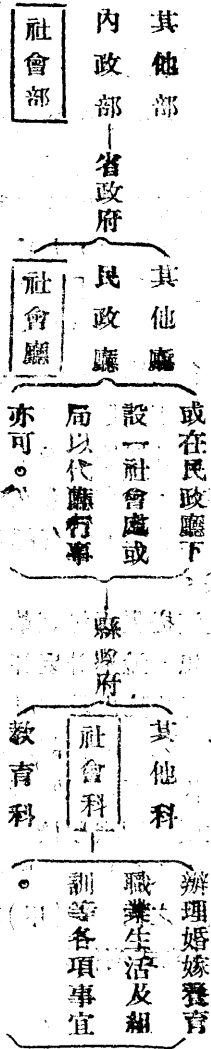 其他部
內政部
社會部
省政府
其他廳
民政廳
社會廳
或在民政廳下
設一社會處或
局以代廳行事
亦可。
縣政府
其他科
社會科
教育科
辦理婚嫁養育
職業生活及組
訓等各項事宜
。